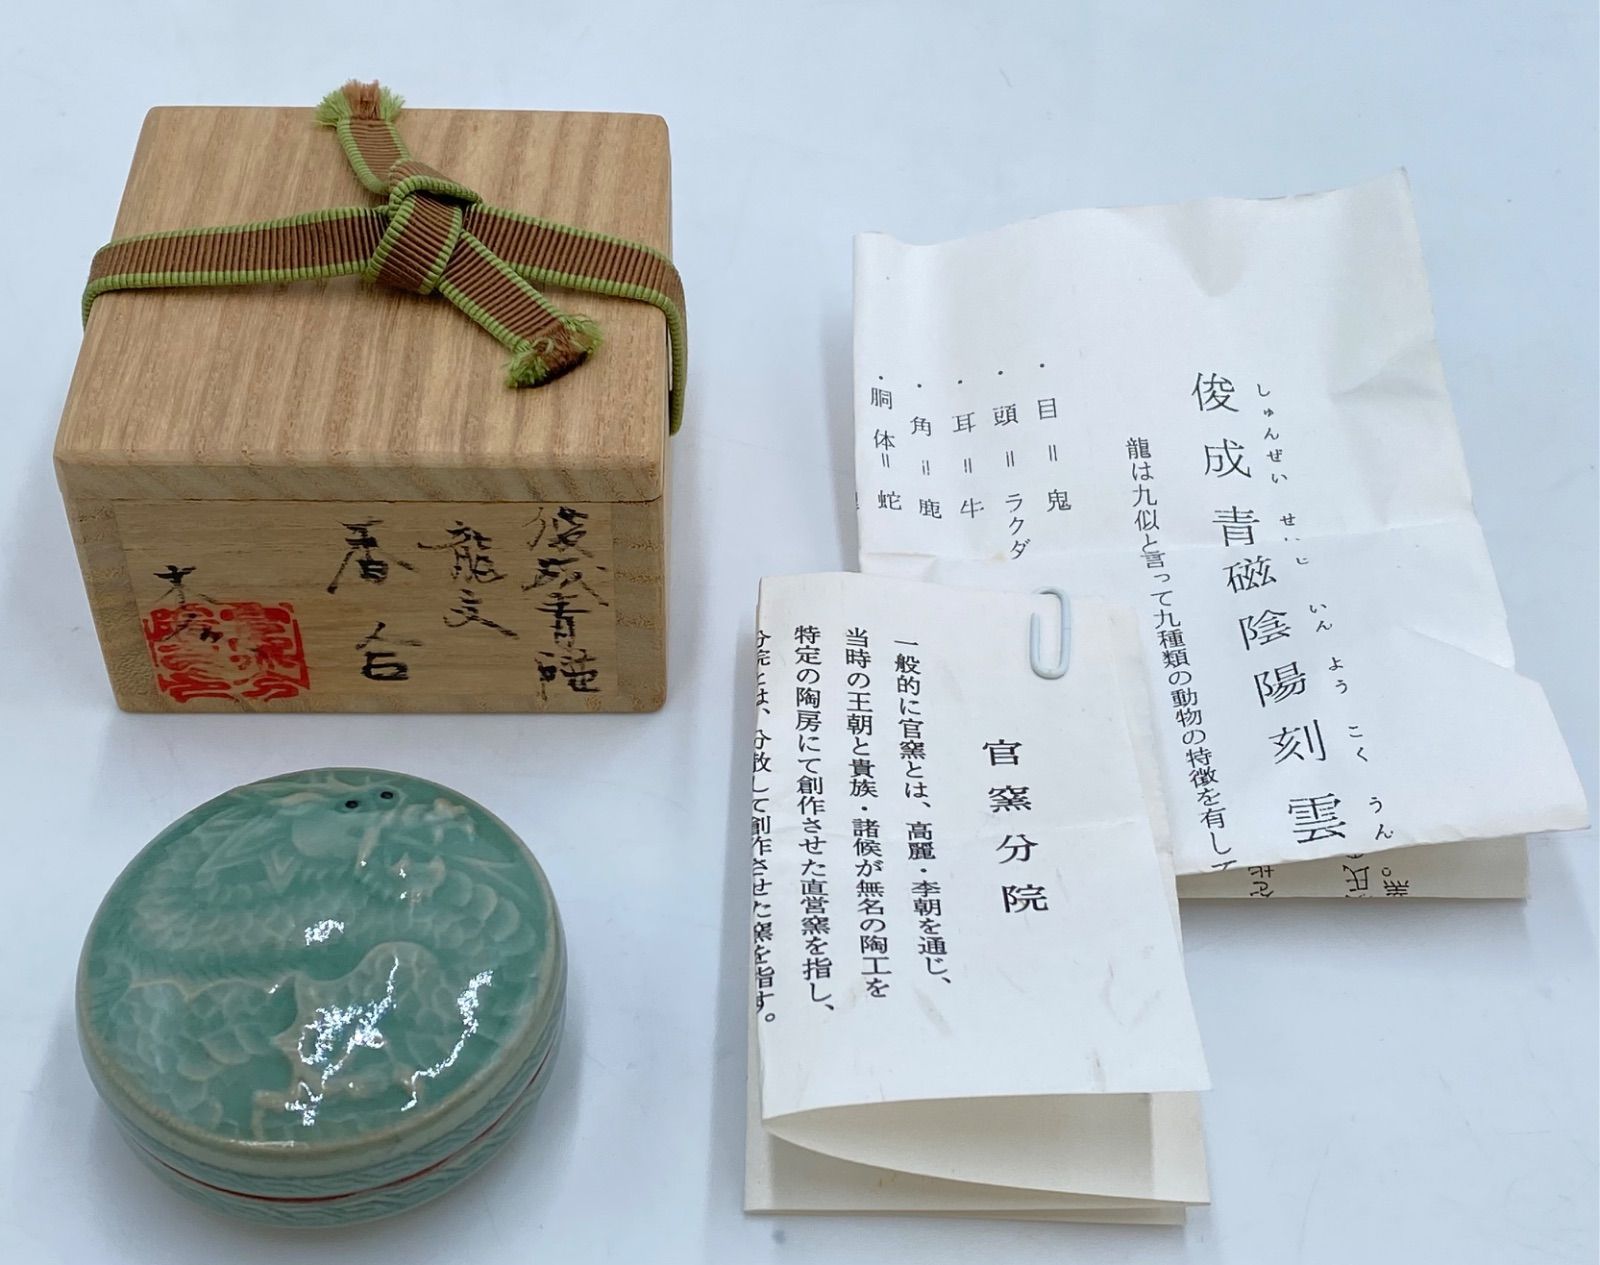 俊成青磁
龍文
香合
俊成青磁陰陽刻雲
しゅんぜい せいじ いんようこくうん
龍は九似と言って九種類の動物の特徴を有して
・目=鬼
・頭=ラクダ
・耳=牛
・角=鹿
・胴体=蛇
官窯分院
一般的に官窯とは、高麗・李朝を通じ、
当時の王朝と貴族・諸候が無名の陶工を
特定の陶房にて創作させた直営窯を指し、
分院とは、分散して創作させた窯を指す。